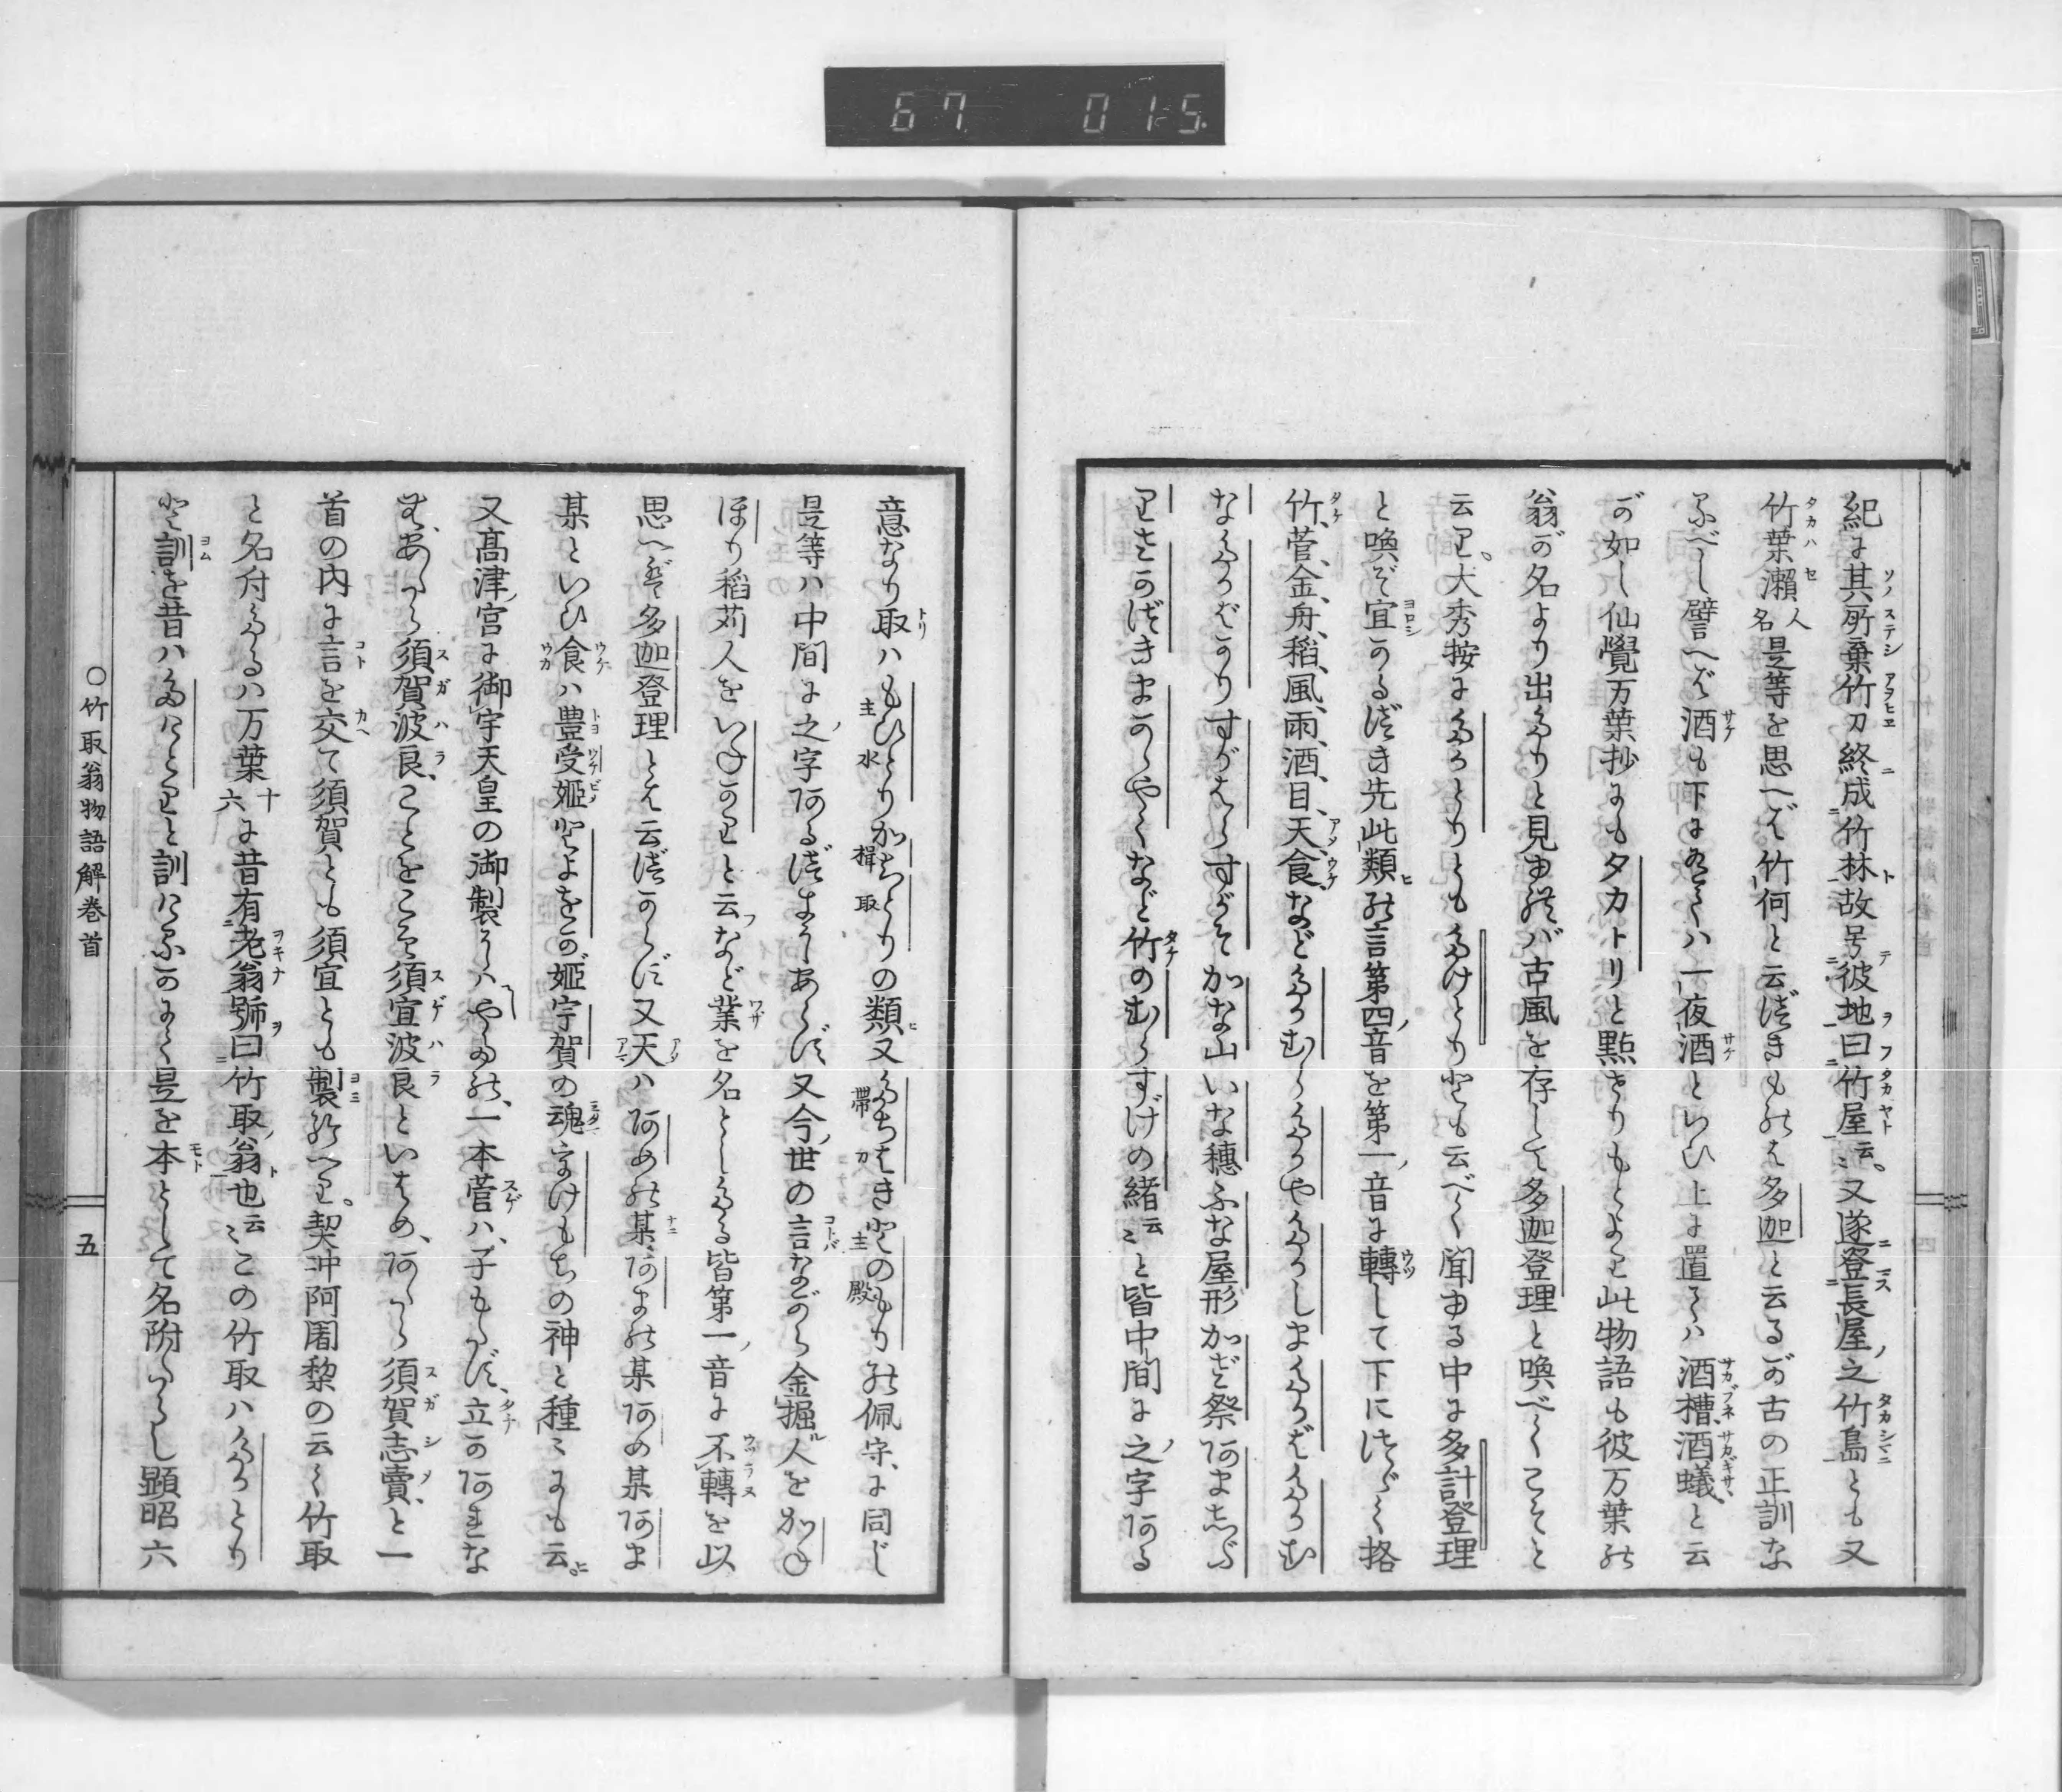 67 015
紀に其所棄竹刀終成竹林故号彼地曰竹屋云〻又遂登長屋之竹島とも又
竹葉瀬人名是等を思へば竹何と云づきものを多迦と云るが古の正訓な
るべし譬へば酒も下に有るハ一夜酒といひ上に置くハ酒槽酒蟻と云
が如し仙覺万葉抄にもタカトリと點せりもとより此物語も彼万葉の
翁が名より出たりと見ゆれバ古風を存して多迦登理と喚べくこそと
云り大秀按にたかとりともたけとりとも云べく聞ゆる中に多計登理
と喚ぞ宜かるべき先此類の言第四音を第一音に轉して下につゞく格
竹、菅、金、舟、稻、風、雨、酒、目、天、食、などたかむらたかやたかしまたかばたかむ
なたかばかりすがはらすがそかな山いな穗ふな屋形かざ祭あまあしぶ
りさかづきまかゝやくなど竹のむらすげの緒云〻と皆中間に之字ある
意なり取ハもひとり主水かぢとり楫取の類又たちはき帶刀とのもり主殿の佩守に同じ
是等ハ中間に之字あるべきにあらず又今世の言ながら金掘人をかね
ほり稻苅人をいねかりと云など業を名としたる皆第一音に不轉を以
思へば多迦登理とは云べからず又天ハあめの某あまの某あめ某あま
某といひ食ハ豊受姫とよをか姫宇賀の魂うけもちの神と種〻にも云〻
又高津宮に御宇天皇の御製にハやたの、一本菅ハ、子もたず、立かあれな
む、あたら須賀波良、ことをこそ須宜波良といはめ、あたら須賀志賣、と一
首の内に言を交て須賀とも須宜とも製給へり契沖阿闍黎の云く竹取
と名付たるハ万葉十六に昔有老翁號曰竹取翁也云〻この竹取ハたかとり
と訓を昔ハたけとりと訓けるかにや是を本として名附たらし顕昭六
○竹取翁物語解巻首
五